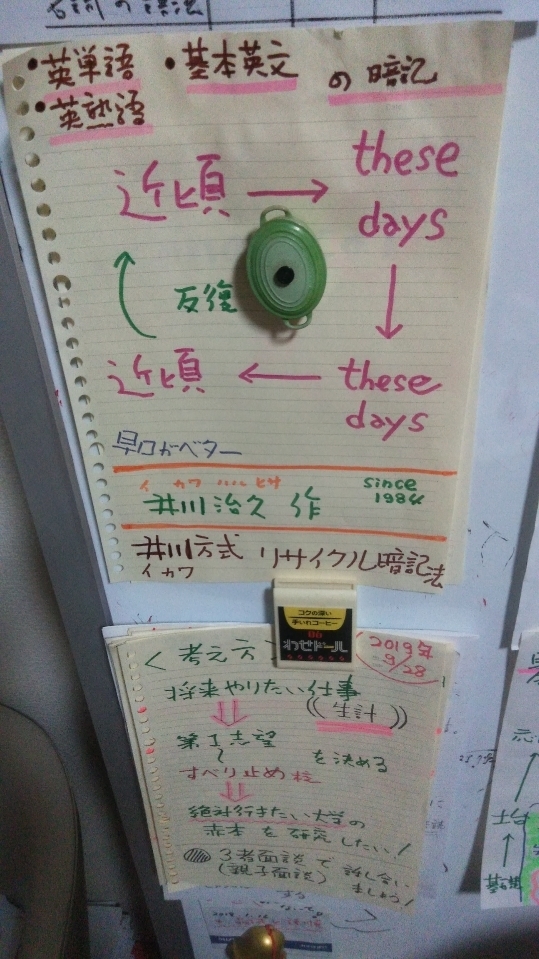 名詞の語法
・英単語 ・基本英文 の暗記
・英熟語
近頃 → these days
↑ 反復 ↓
近頃 ← these days
早口がベター
イカワ ハルヒサ
井川治久 作 since 1984
井川方式 リサイクル暗記法
イカワ
コクの深い
手いれコーヒー
わせドール
2019年
9/28
< 考え方
将来やりたい仕事
((生計))
第1志望
〜 を決める
すべり止め校
絶対行きたい大学の
赤本を研究したい!
3者面談で
(親子面談) 話し合い
ましょう!
基礎